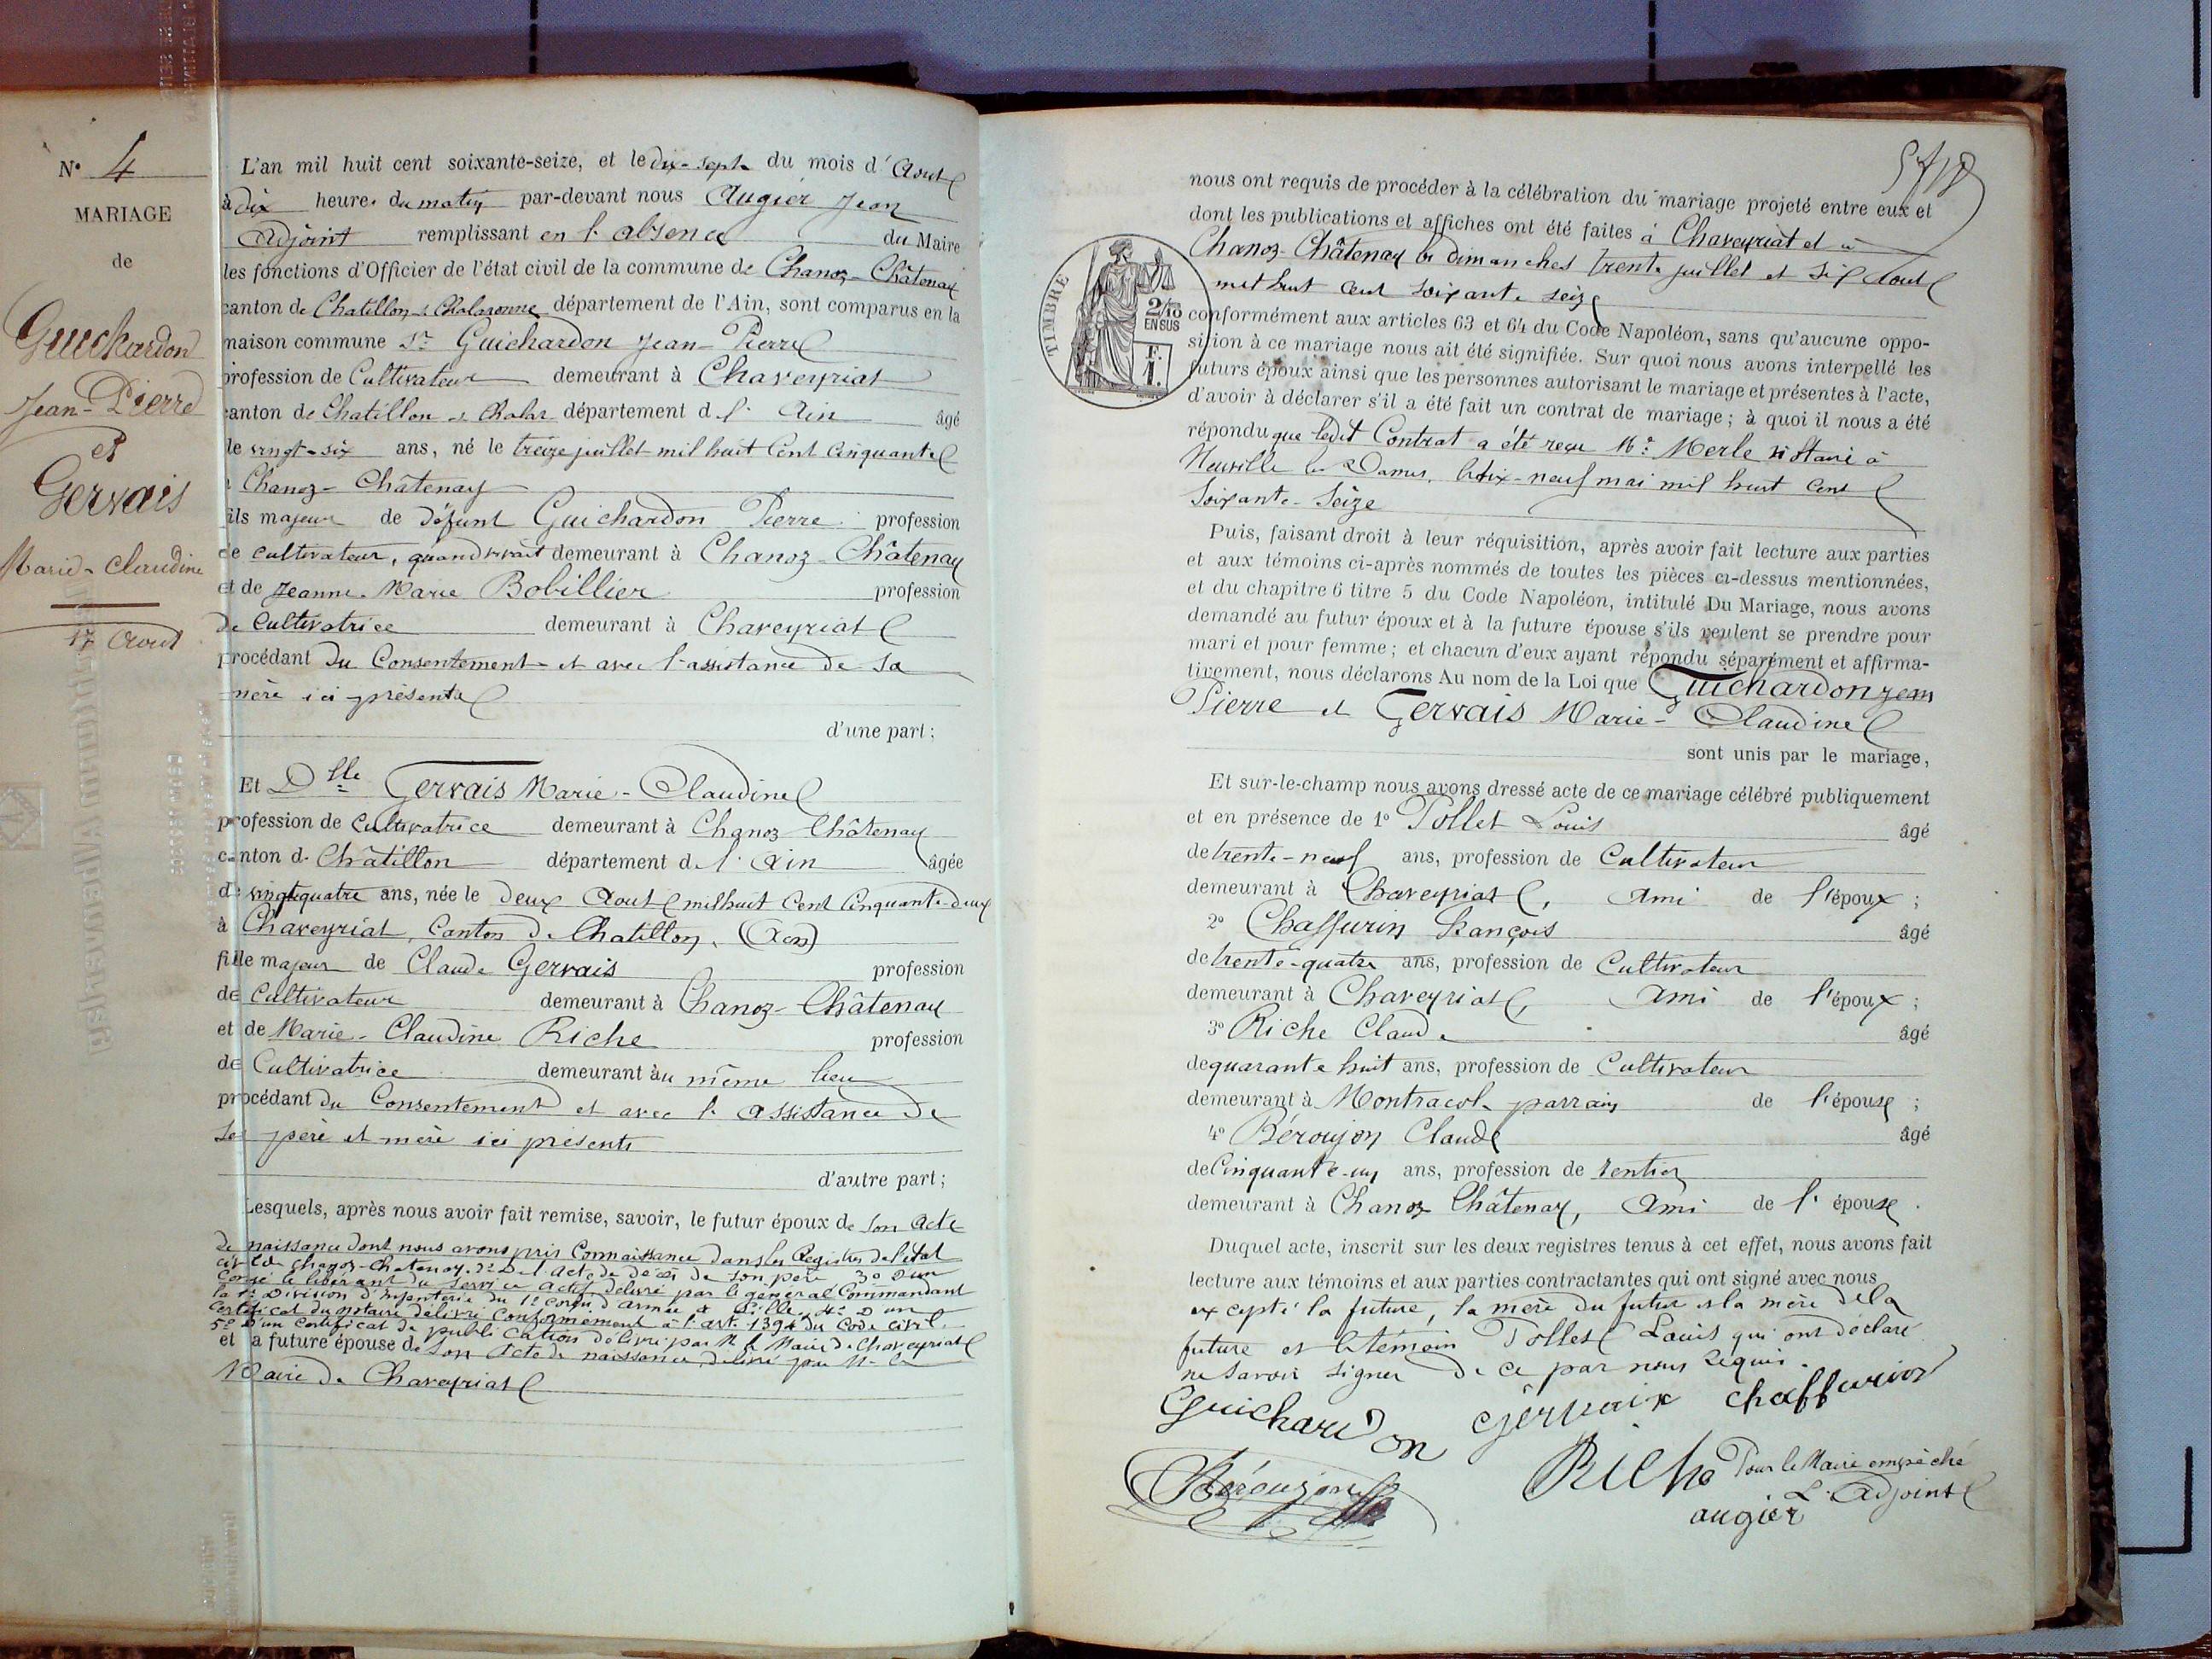 N° 4
MARIAGE
de
Guichardon
Jean-Pierre
et
Gervais
Marie-Claudine
17 Aout
L'an mil huit cent soixante-seize, et le dix-sept du mois d'Aout
à dix heures du matin par-devant nous Augier Jean
Adjoint remplissant en l'absence du Maire
les fonctions d'Officier de l'état civil de la commune de Chanoz-Châtenay
canton de Chatillon s. Chalaronne département de l'Ain, sont comparus en la
maison commune Sr Guichardon Jean-Pierre
profession de Cultivateur demeurant à Chaveyriat
canton de Chatillon s. Chalar département de l'Ain âgé
de vingt-six ans, né le treize juillet mil huit Cent Cinquante
à Chanoz-Châtenay
fils majeur de défunt Guichardon Pierre profession
de cultivateur, quand vivait demeurant à Chanoz-Châtenay
et de Jeanne-Marie Bobillier profession
De Cultivatrice demeurant à Chaveyriat
procédant Du Consentement et avec l'assistance de sa
mère ici présente
d'une part;
Et Dlle Gervais Marie-Claudine
profession de Cultivatrice demeurant à Chanoz Châtenay
canton de Châtillon département de l'Ain âgée
de vingt quatre ans, née le deux Aout mil huit Cent Cinquante-deux
à Chaveyriat, Canton de Chatillon, (Ain)
fille majeur de Claude Gervais profession
de Cultivateur demeurant à Chanoz-Châtenay
et de Marie-Claudine Riche profession
de Cultivatrice demeurant àu même lieu
procédant du Consentement et avec l'assistance de
Ses père et mère ici présents
d'autre part;
Lesquels, après nous avoir fait remise, savoir, le futur époux de son acte
de naissance dont nous avons pris Connaissance dans les Registres de l'état
civil de Chanoz-Chatenay. 2° De l'acte de décès de son père 3° D'un
Congé le libérant du Service actif délivré par le général Commandant
la 1e Division d'Infanterie du 1e Corps d'armée à Lille, 4° D'un
Certificat du notaire délivré Conformément à l'art. 1394 du Code Civil.
5° D'un Certificat de publication délivré par M. le Maire de Chaveyriat
et la future épouse de son acte de naissance délivré par M. le
Maire de Chaveyriat
nous ont requis de procéder à la célébration du mariage projeté entre eux et
dont les publications et affiches ont été faites à Chaveyriat et à
Chanoz-Châtenay les dimanches trente juillet et six Aout
mil huit cent soixante seize
TIMBRE
2/10
EN SUS
F.
1.
conformément aux articles 63 et 64 du Code Napoléon, sans qu'aucune oppo-
sition à ce mariage nous ait été signifiée. Sur quoi nous avons interpellé les
futurs époux ainsi que les personnes autorisant le mariage et présentes à l'acte,
d'avoir à déclarer s'il a été fait un contrat de mariage; à quoi il nous a été
répondu que ledit Contrat a été reçu Me Merle notaire à
Neuville les Dames, le dix-neuf mai mil huit cent
Soixante-Seize
Puis, faisant droit à leur réquisition, après avoir fait lecture aux parties
et aux témoins ci-après nommés de toutes les pièces ci-dessus mentionnées,
et du chapitre 6 titre 5 du Code Napoléon, intitulé Du Mariage, nous avons
demandé au futur époux et à la future épouse s'ils veulent se prendre pour
mari et pour femme; et chacun d'eux ayant répondu séparément et affirma-
tivement, nous déclarons Au nom de la Loi que Guichardon Jean
Pierre et Gervais Marie-Claudine
sont unis par le mariage,
Et sur-le-champ nous avons dressé acte de ce mariage célébré publiquement
et en présence de 1° Tollet Louis âgé
de trente-neuf ans, profession de Cultivateur
demeurant à Chaveyriat, Ami de l'époux;
2° Chaffurin François âgé
de trente-quatre ans, profession de Cultivateur
demeurant à Chaveyriat, Ami de l'époux;
3° Riche Claude âgé
de quarante huit ans, profession de Cultivateur
demeurant à Montracol parrain de l'épouse;
4° Béroujon Claude âgé
de Cinquante-un ans, profession de rentier
demeurant à Chanoz Châtenay, Ami de l'épouse.
Duquel acte, inscrit sur les deux registres tenus à cet effet, nous avons fait
lecture aux témoins et aux parties contractantes qui ont signé avec nous
excepté la future, la mère du futur et la mère de la
future et le témoin Tollet Louis qui ont déclaré
ne savoir signer de ce par nous requis.
Guichardon gervaix chaffurin
Béroujon Riche Pour le Maire empêché
L'Adjoint
augier